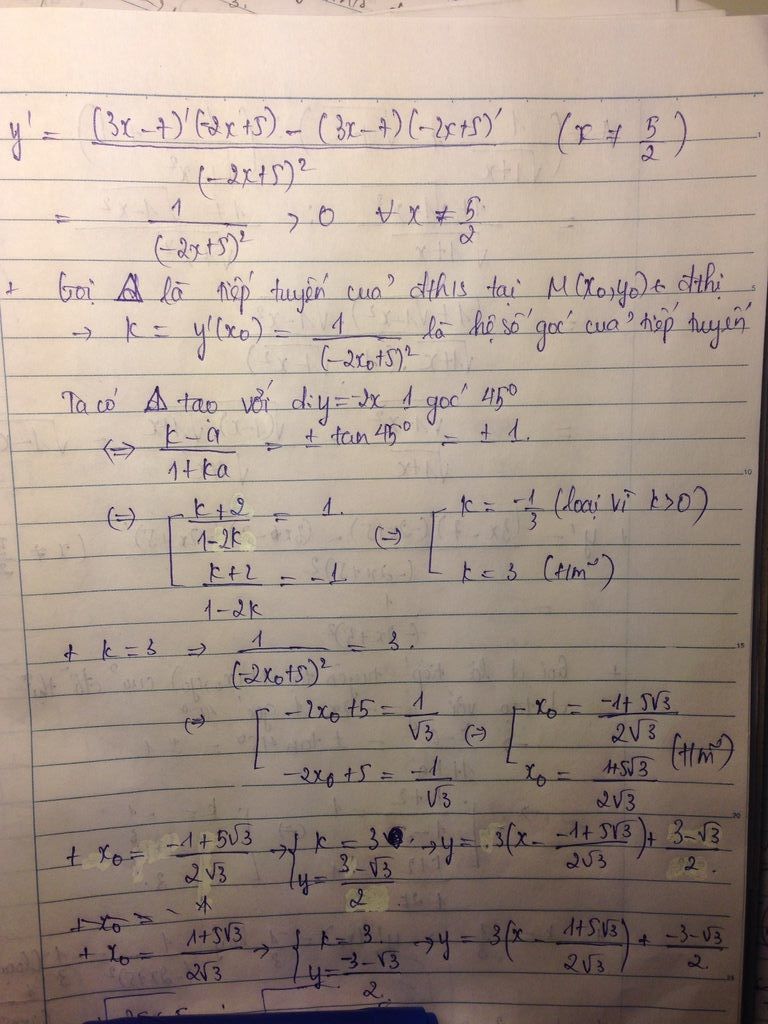 y' = \frac{(3x-7)'(-2x+5) - (3x-7)(-2x+5)'}{(-2x+5)^2} (x ≠ \frac{5}{2})
= \frac{1}{(-2x+5)^2} > 0 ∀ x ≠ \frac{5}{2}
+ Gọi Δ là tiếp tuyến của đths tại M(x₀,y₀) ∈ đthị
→ k = y'(x₀) = \frac{1}{(-2x₀+5)^2} là hệ số góc của tiếp tuyến
Ta có Δ tạo với d: y = -2x 1 góc 45°
⇔ \frac{k-a}{1+ka} = ± tan 45° = ± 1.
⇔ [ \frac{k+2}{1-2k} = 1. ⇔ [ k = -\frac{1}{3} (loại vì k>0)
\frac{k+2}{1-2k} = -1 k = 3 (t/m)
+ k = 3 ⇒ \frac{1}{(-2x₀+5)^2} = 3.
⇔ [ -2x₀+5 = \frac{1}{√3} ⇔ [ x₀ = \frac{-1+5√3}{2√3}
-2x₀+5 = \frac{-1}{√3} x₀ = \frac{1+5√3}{2√3} (t/m)
+ x₀ = \frac{-1+5√3}{2√3} → { k = 3 . → y = 3(x - \frac{-1+5√3}{2√3}) + \frac{3-√3}{2}.
y = \frac{3-√3}{2}.
+ x₀ = - 1
+ x₀ = \frac{1+5√3}{2√3} → { k = 3 → y = 3(x - \frac{1+5√3}{2√3}) + \frac{-3-√3}{2}
y = \frac{-3-√3}{2}.